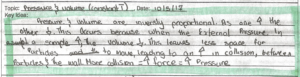 Topic: Pressure & Volume (constant T) Date: 10/15/12
Key Idea:
Pressure & Volume are inversly proportional. As one ↑ the
other ↓. This occurs because when the External Pressure in
a sample ↑, the volume ↓. This leaves less space for
Particles to move leading to an ↑ in collision between
Particles & the wall. More collision → ↑ force → ↑ Pressure